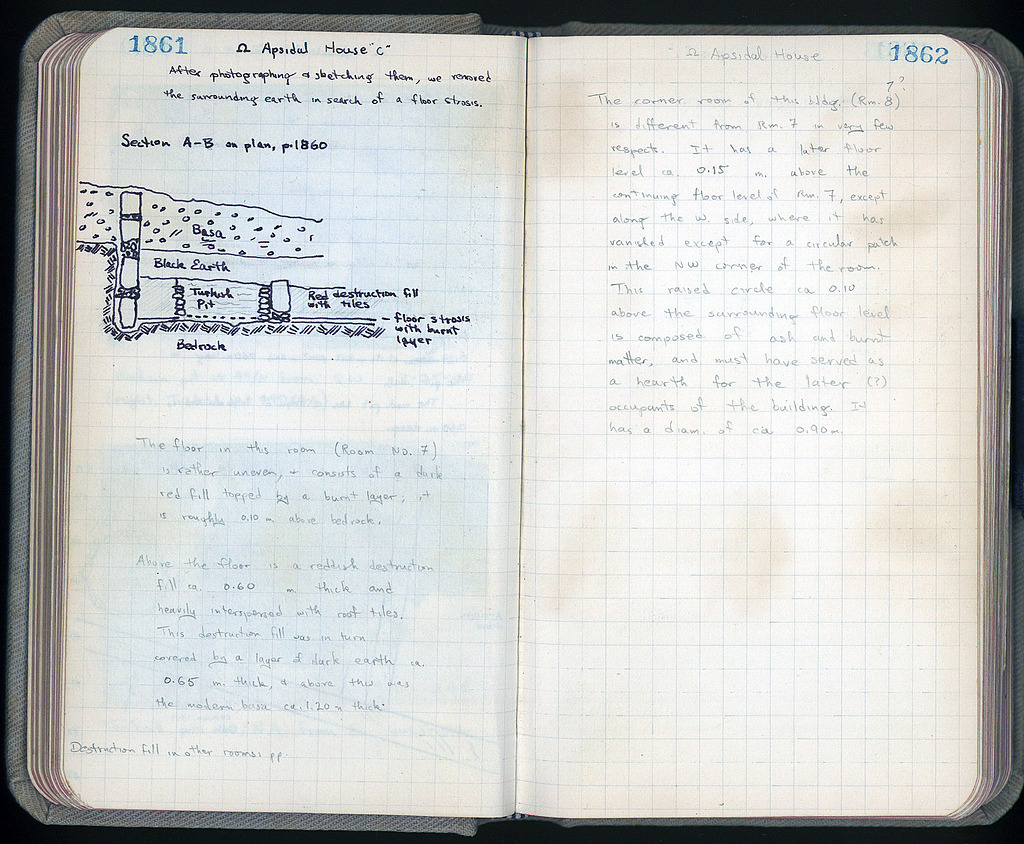 1861
Ω Apsidal House "C"
After photographing & sketching them, we removed
the surrounding earth in search of a floor strosis.
Section A-B on plan, p.1860
Basa
Black Earth
Turkish
Pit
Red destruction fill
with tiles
- floor strosis
with burnt
layer
Bedrock
The floor in this room (Room No. 7)
is rather uneven, & consists of a dark
red fill topped by a burnt layer; it
is roughly 0.10 m above bedrock.
Above the floor is a reddish destruction
fill ca. 0.60 m. thick and
heavily interspersed with roof tiles.
This destruction fill was in turn
covered by a layer of dark earth ca.
0.65 m. thick, & above this was
the modern basa ca. 1.20 m thick.
Destruction fill in other rooms: pp.
Ω Apsidal House
1862
7?
The corner room of this bldg. (Rm. 8)
is different from Rm. 7 in very few
respects. It has a later floor
level ca. 0.15 m. above the
continuing floor level of Rm. 7, except
along the W. side, where it has
vanished except for a circular patch
in the NW corner of the room.
This raised circle ca 0.10
above the surrounding floor level
is composed of ash and burnt
matter, and must have served as
a hearth for the later (?)
occupants of the building. It
has a diam. of ca 0.90 m.